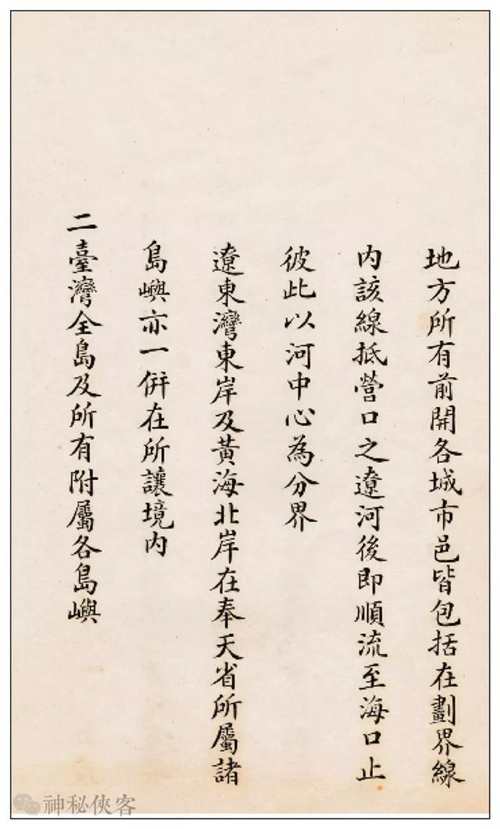 地方所有前開各城市邑皆包括在劃界線
内該線抵營口之遼河後即順流至海口止
彼此以河中心為分界
遼東灣東岸及黃海北岸在奉天省所屬諸
島嶼亦一併在所讓境内
二臺灣全島及所有附屬各島嶼
神秘俠客